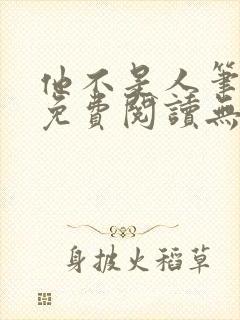 他不是人筆
免費閱讀無
身披火稻草